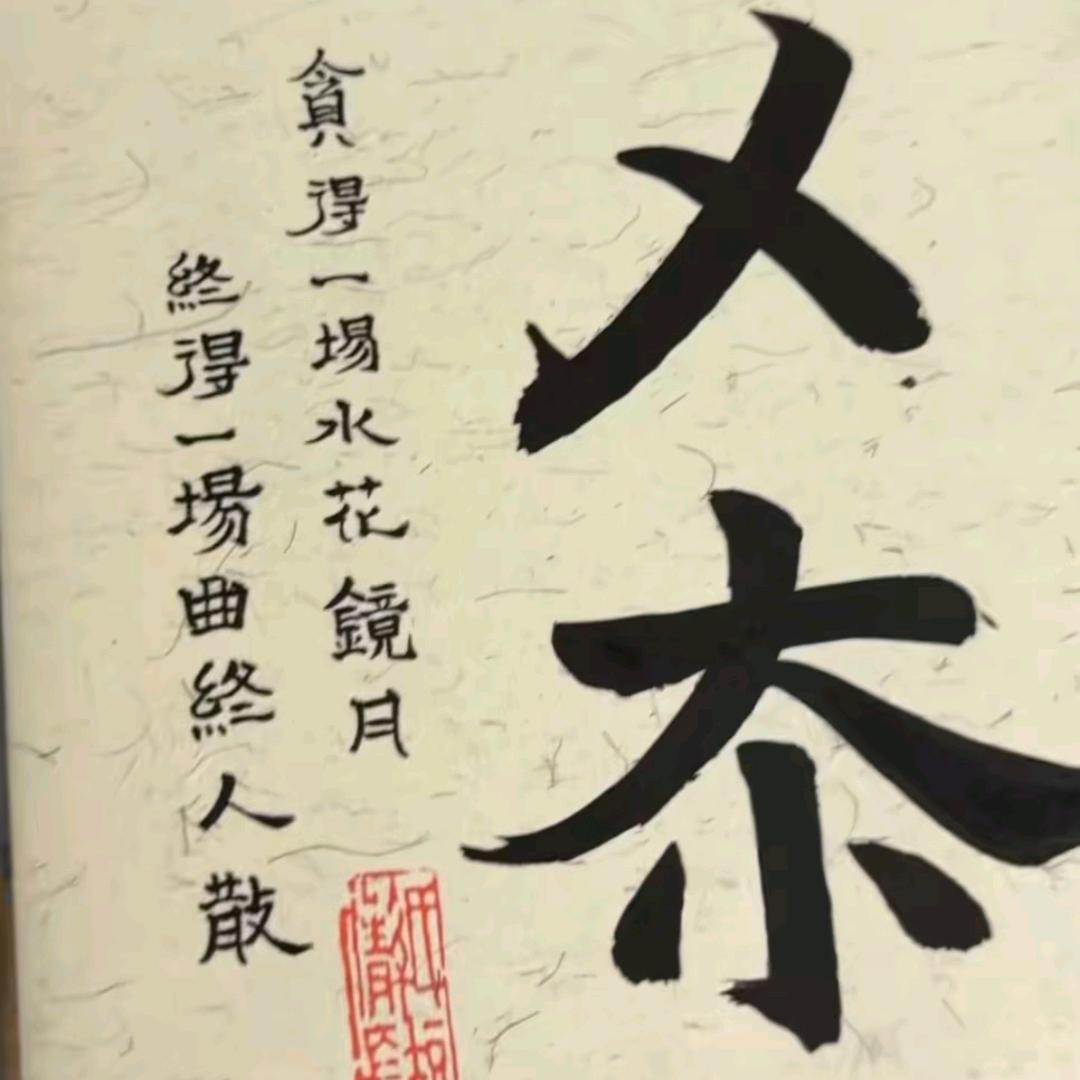 乂夵
貪得一場水花鏡月
終得一場曲終人散